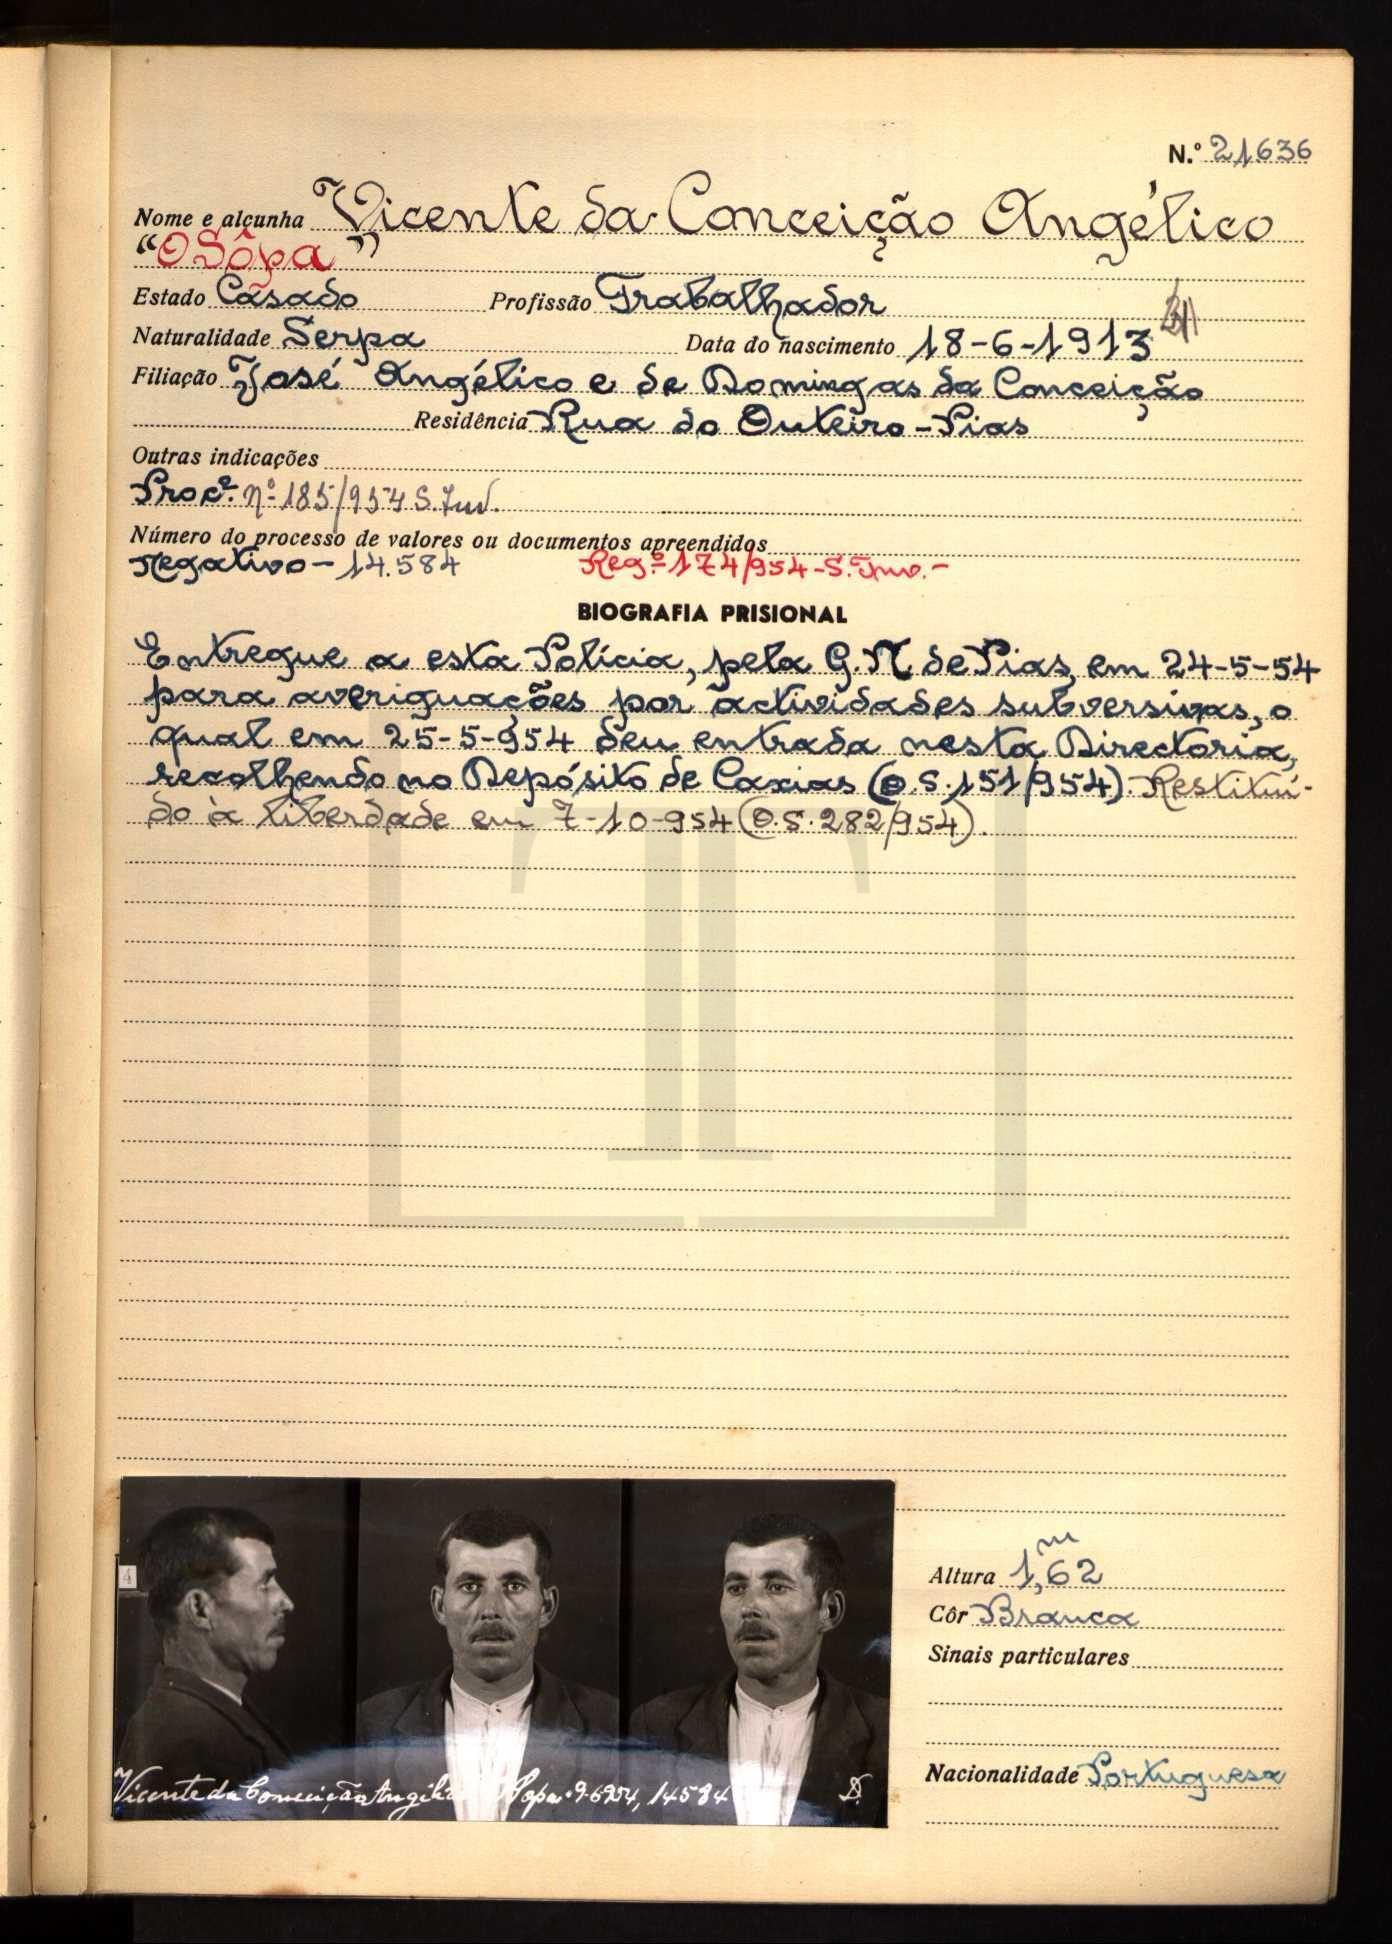 N.º 21636
Nome e alcunha Vicente da Conceição Angélico
"O Sôpa"
Estado Casado Profissão Trabalhador
Naturalidade Serpa Data do nascimento 18-6-1913
Filiação José Angélico e de Domingas da Conceição
Residência Rua do Outeiro-Pias
Outras indicações
Procº. nº 185/954 S. Inv.
Número do processo de valores ou documentos apreendidos
Negativo-14.584 Regº 174/954-S. Inv.-
BIOGRAFIA PRISIONAL
Entregue a esta Polícia, pela G.N. de Pias, em 24-5-54
para averiguações por actividades subversivas, o
qual em 25-5-954 deu entrada nesta Directoria,
recolhendo no Depósito de Caxias (O.S.151/954). Restituí-
do à liberdade em 7-10-954 (O.S.282/954).
4
Vicente da Conceição Angélico Sopa 9-6954, 14584
Altura 1,m62
Côr Branca
Sinais particulares
Nacionalidade Portuguesa